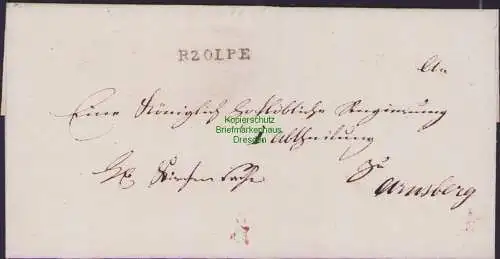 R2OLPE
An
Eine Königlich Hochlöbliche Regierung
1 Abtheilung
Kirchen Sache
zu
Arnsberg
Kopierschutz
Briefmarkenhaus
Dresden